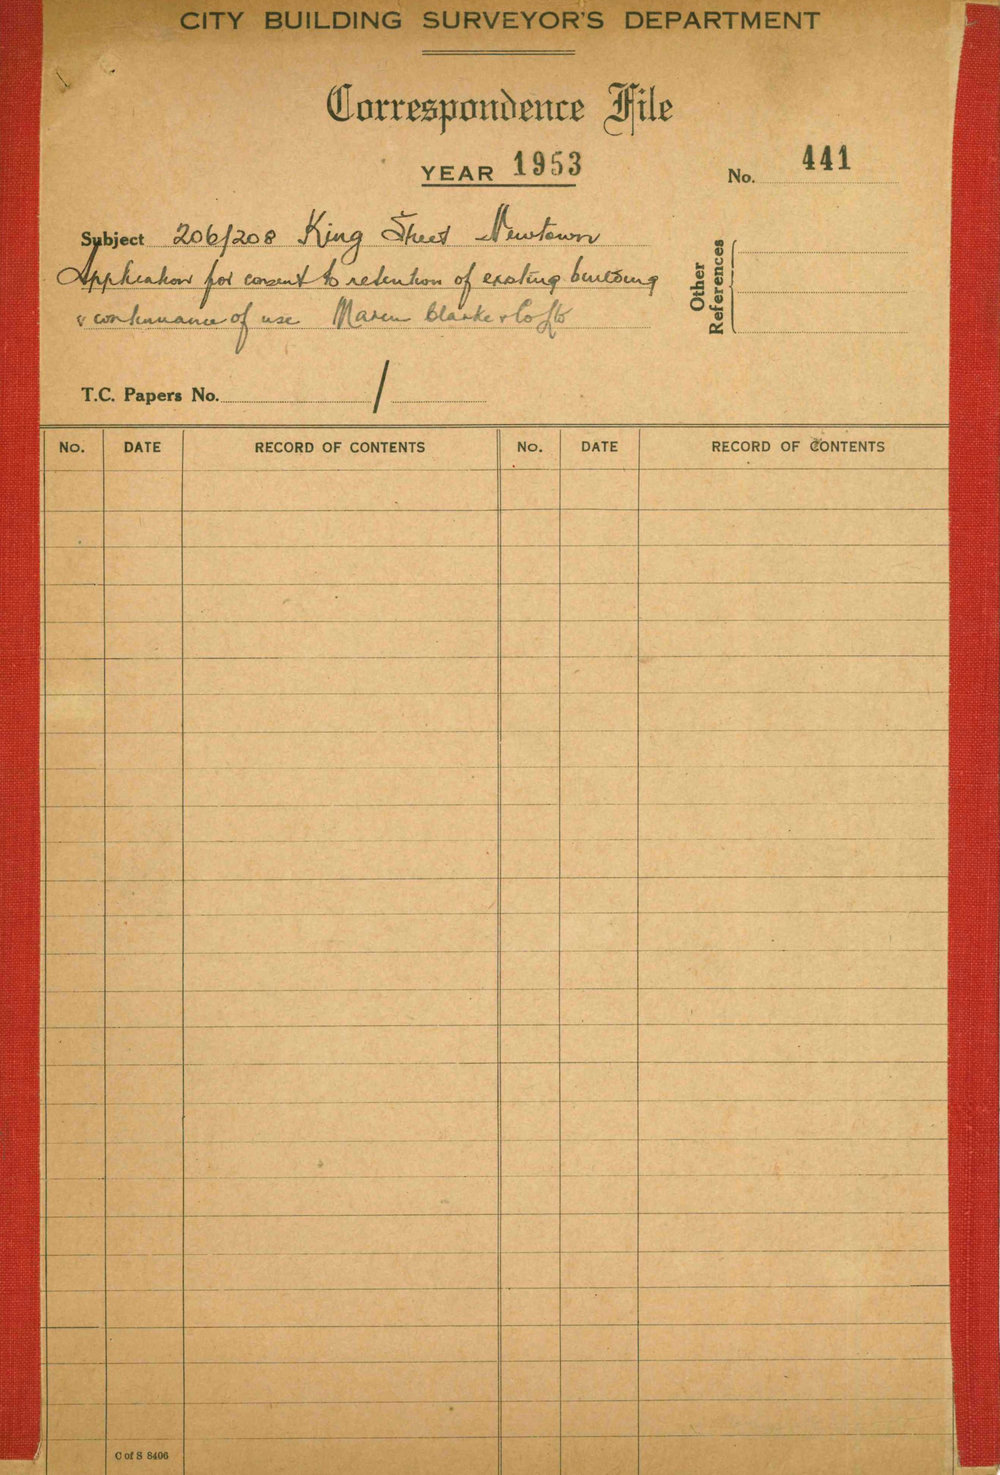 CITY BUILDING SURVEYOR'S DEPARTMENT
Correspondence File
YEAR 1953
No. 441
Subject 206/208 King Street Newtown
Application for consent to retention of existing building
& continuance of use Clarke & Co Ltd
Other References
T.C. Papers No. /
No. DATE RECORD OF CONTENTS No. DATE RECORD OF CONTENTS
C of S 8406